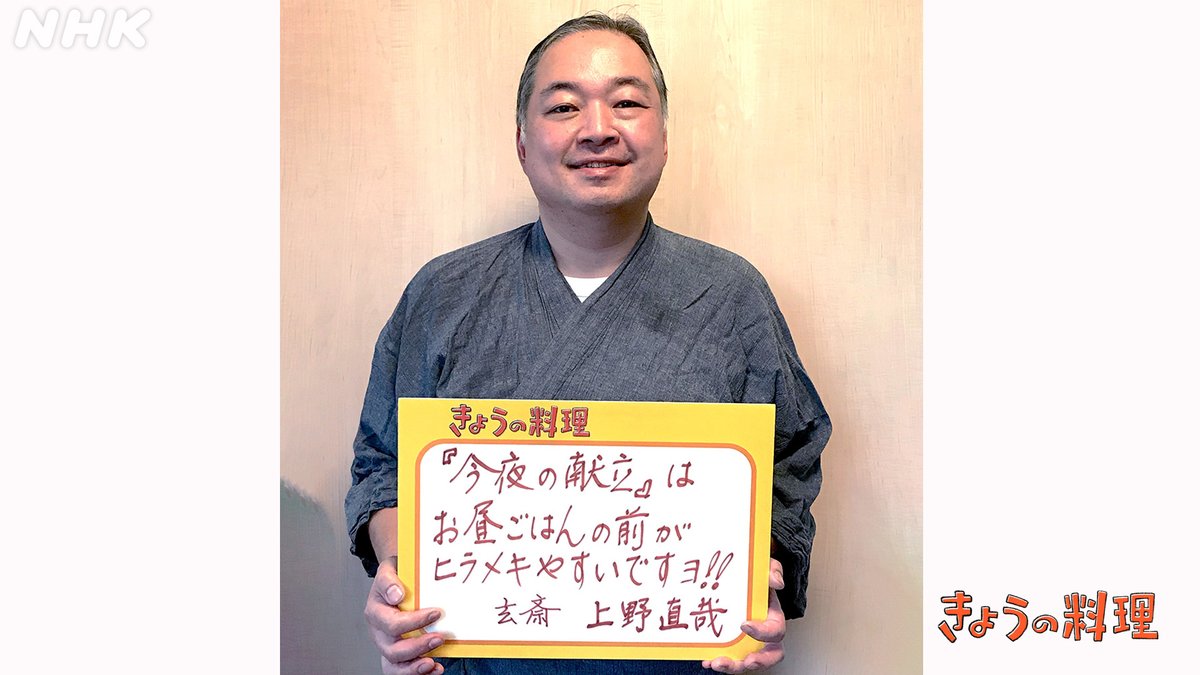 NHK
きょうの料理
『今夜の献立』は
お昼ごはんの前が
ヒラメキやすいですヨ!!
玄斎 上野直哉
きょうの料理